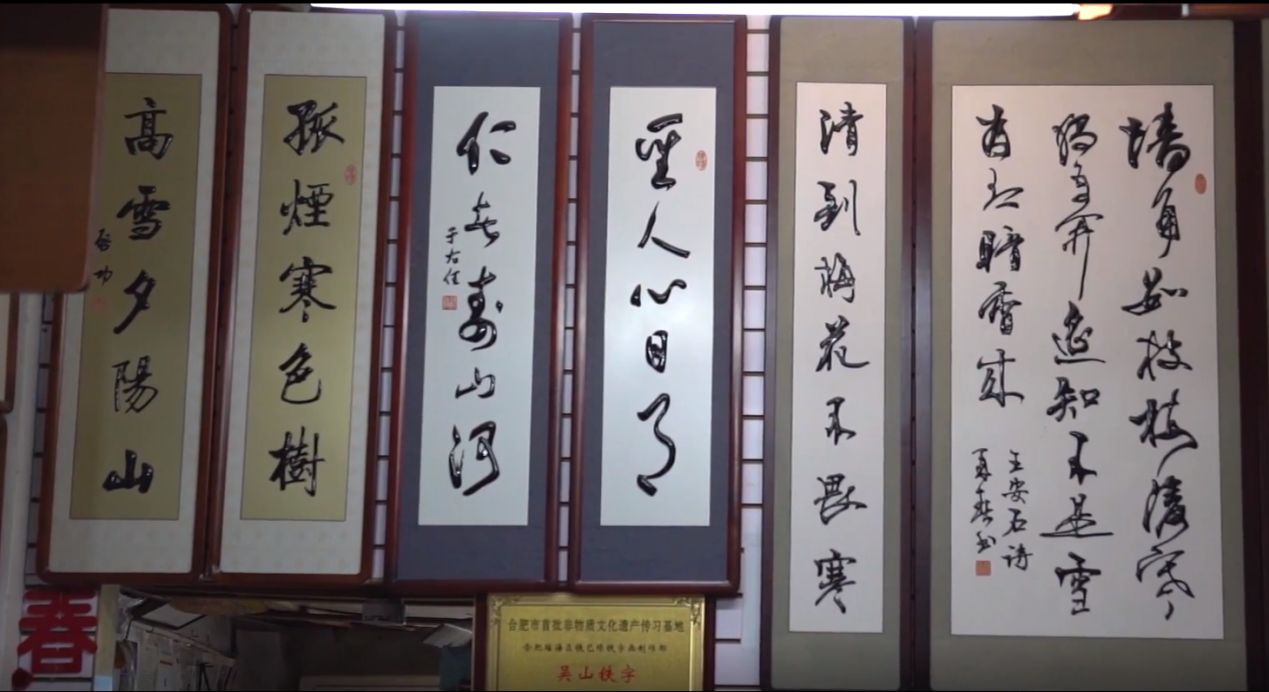 墙角数枝梅凌寒
独自开遥知不是雪
为有暗香来
王安石诗
清到梅花不畏寒
聖人心日月
仁者壽山河
于右任
孤煙寒色樹
高雪夕陽山
启功
合肥市首批非物质文化遗产传习基地
吴山铁字
春